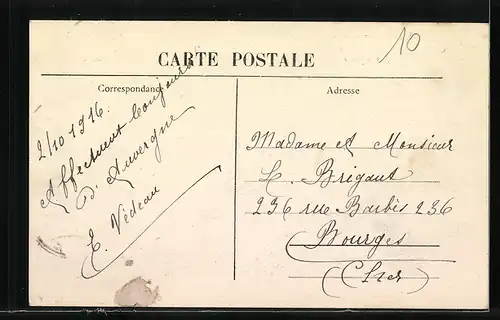 10
CARTE POSTALE
Correspondance
Adresse
2/10 1916.
Affectueux bonjours
D'Auvergne
E. Védeau
Madame et Monsieur
H. Brigaut
236 rue Barbès 236
Bourges
(Cher)